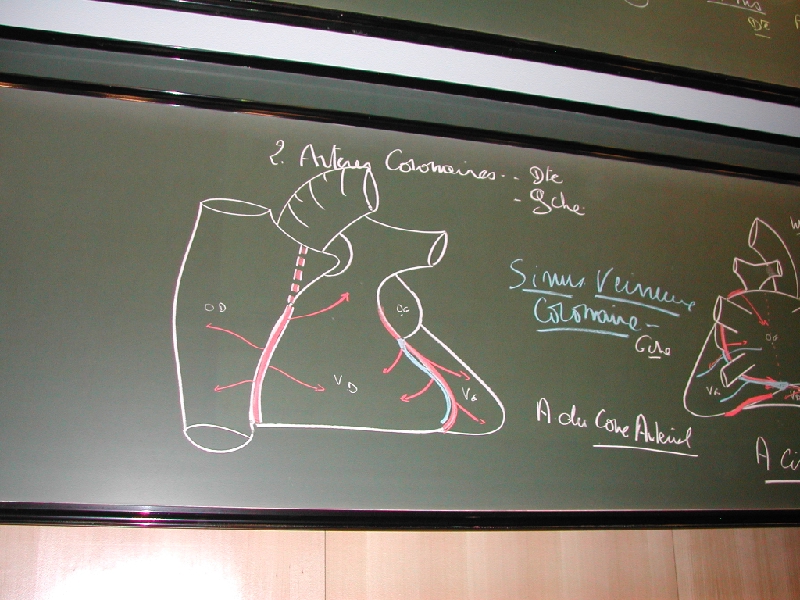 2. Artères Coronaires - Dte
- Gche
Sinus Veineux
Coronaire -
Gche
A du Cone Artériel
OD
VD
OG
VG
OG
VG
A Ci
Dte